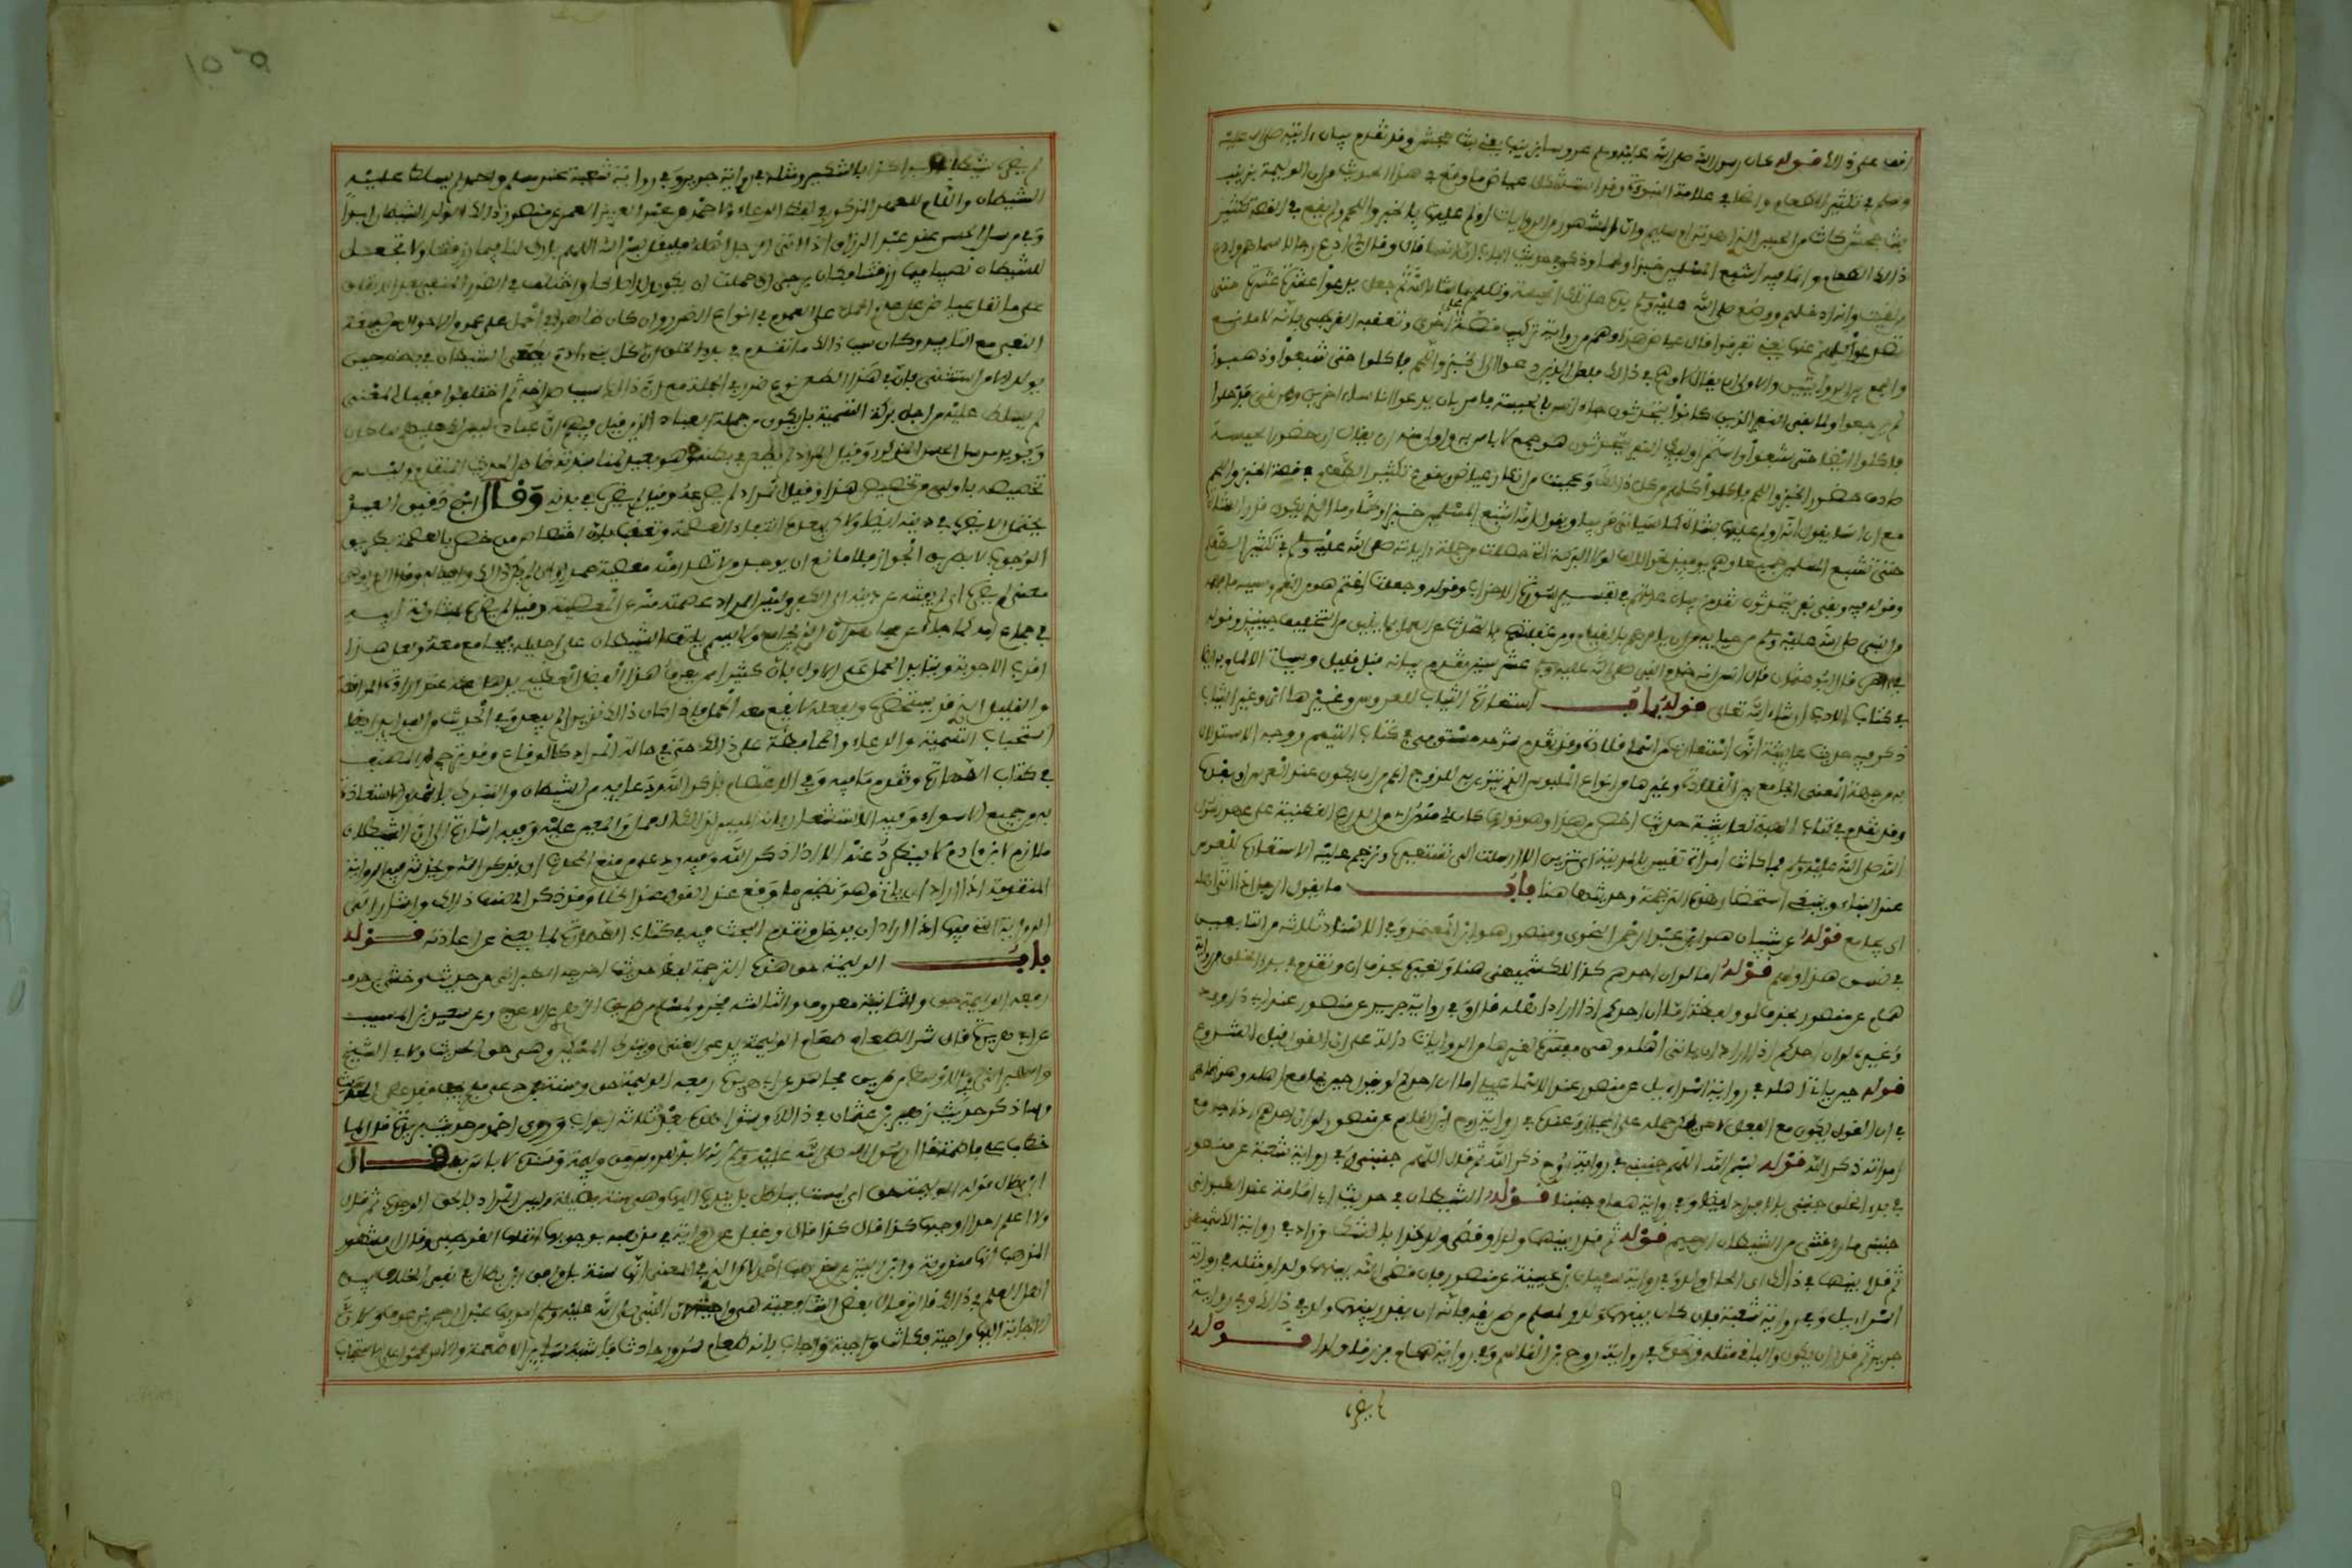 اقف على ذلك قوله كان رسول الله صلى الله عليه وسلم عروسا بزينب يعني بنت جحش وقد تقدم بيان اية صلى الله عليه
وسلم في تكثير الطعام واضحا في علامة النبوة وقد استشكل عياض ما وقع في هذا الحديث من ان الوليمة بزينب
بنت جحش كانت من الحيس الذي اهدته ام سليم وان المشهور من الروايات انه اولم عليها بالخبز واللحم ولم يقع في القصة تكثير
ذلك الطعام وانما فيه اشبع المسلمين خبزا ولحما وذكر في حديث الباب ان انسا قال فقال لي ادع رجالا سماهم وادع
من لقيت وانه ادخلهم ووضع صلى الله عليه وسلم يده على تلك الحيسة وتكلم بما شاء الله ثم جعل يدعو عشرة عشرة حتى
تصدعوا كلهم عنها يعني تفرقوا قال عياض هذا وهم من رواية تركيب قصة على اخرى وتعقبه القرطبي بانه لا مانع
والجمع بين الروايتين والاولى ان يقال لا وهم في ذلك فلعل الذين دعوا الى الخبز واللحم فاكلوا حتى شبعوا وذهبوا
لم يرجعوا ولما بقي النفر الذين كانوا يتحدثون جاء انس بالحيسة فامر بان يدعو اناسا اخرين ومن لقي فدخلوا
فاكلوا ايضا حتى شبعوا واستمر اوليك النفر يتحدثون هو جمع لا باس به واولى منه ان يقال ان حضور الحيسة
صادف حضور الخبز واللحم فاكلوا كلهم من كل ذلك وعجبت من انكار عياض وقوع تكثير الطعام في قصة الخبز واللحم
مع ان انسا يقول انه اولم عليها بشاة كما سياتي قريبا ويقول انه اشبع المسلمين خبزا ولحما وما الذي يكون قدر الشاة
حتى تشبع المسلمين جميعا وهم يوميذ نحو الالف لولا البركة التي حصلت من جملة اياته صلى الله عليه وسلم في تكثير الطعام
وقوله فيه وبقي نفر يتحدثون تقدم بيان عدتهم في تفسير سورة الاحزاب وقوله وجعلت اغتم هو من الغم وسببه ما فهمه
من النبي صلى الله عليه وسلم من حيايه من ان يامرهم بالقيام ومن غفلتهم بالتحدث عن العمل بما يليق من التخفيف حينيذ وقوله
في اخره قال ابو عثمان قال انس انه خدم النبي صلى الله عليه وسلم عشر سنين تقدم بيانه قبل قليل وسياتي الالمام به ايضا
في كتاب الادب ان شاء الله تعالى قوله باب استعارة الثياب للعروس وغيرها اي وغير الثياب
ذكر فيه حديث عايشة انها استعارت من اسما قلادة وقد تقدم شرحه مستوفى في كتاب التيمم ووجه الاستدلال
به من جهة المعنى الجامع بين القلادة وغيرها من انواع الملبوس الذي يتزين به للزوج اعم من ان يكون عند العرس او بعده
وقد تقدم في كتاب الهبة لعايشة حديث اخص من هذا وهو قولها كان لي منهن اي من الدروع القطنية على عهد رسول
الله صلى الله عليه وسلم فما كانت امراة تقين بالمدينة اي تتزين الا ارسلت الي تستعيره وترجم عليه الاستعارة للعرس
عند البناء وينبغي استحضار هذه الترجمة وحديثها هنا باب ما يقول الرجل اذا اتى اهله
اي جامع قوله عن شيبان هو ابن عبد الرحمن النحوي ومنصور هو ابن المعتمر وفي الاسناد ثلاثة من التابعين
في نسق هذا اولهم قوله اما لو ان احدهم كذا للكشميهني هنا ولغيره بحذف ان وتقدم في بدء الخلق من رواية
همام عن منصور بحذف لو ولفظه اما ان احدكم اذا اراد اهله قال وفي رواية جرير عن منصور عند ابي داود
وغيره لو ان احدكم اذا اراد ان ياتي اهله وهي مفسرة لغيرها من الروايات دالة على ان القول قبل الشروع
قوله حين ياتي اهله في رواية اسراءيل عن منصور عند الاسماعيلي اما ان احدكم لو يقول حين يجامع اهله وهو ظاهر
في ان القول يكون مع الفعل لاكن يمكن حمله على المجاز وعنده في رواية روح ابن القاسم عن منصور لو ان احدهم اذا جامع
امراته ذكر الله قوله بسم الله اللهم جنبني في رواية روح ذكر الله ثم قال اللهم جنبني وفي رواية شعبة عن منصور
في بدء الخلق جنبني بالافراد ايضا وفي رواية همام جنبنا قوله الشيطان في حديث ابي امامة عند الطبراني
جنبني ما رزقتني من الشيطان الرجيم قوله ثم قدر بينهما ولد او قضي ولد كذا بالشك وزاد في رواية الكشميهني
ثم قدر بينهما في ذلك اي الحال ولد وفي رواية سفيان بن عيينة عن منصور فان قضى الله بينهما ولدا ومثله في رواية
اسراءيل وفي رواية شعبة فان كان بينهما ولد ولمسلم من طريقه فانه ان يقدر بينهما ولد في ذلك وفي رواية
جرير ثم قدر ان يكون والباقي مثله ونحوه في رواية روح بن القاسم وفي رواية همام فرزقا ولدا قوله
لم يضره
لم يضره شيطان ابدا كذا بالتنكير ومثله في رواية جرير وفي رواية شعبة عند مسلم واحمد لم يسلط عليه
الشيطان واللام للعهد المذكور في لفظ الدعاء ولاحمد عن عبد العزيز العمي عن منصور لم يضر ذلك الولد الشيطان ابدا
وفي مرسل الحسن عند عبد الرزاق اذا اتى الرجل اهله فليقل بسم الله اللهم بارك لنا فيما رزقتنا ولا تجعل
للشيطان نصيبا فيما رزقتنا فكان يرجى ان حملت ان يكون ولدا صالحا واختلف في الضرر المنفي بعد الاتفاق
على ما نقل عياض على عدم الحمل على العموم في انواع الضرر وان كان ظاهرا في الحمل على عموم الاحوال من صيغة
النفي مع التابيد وكان سبب ذلك ما تقدم في بدء الخلق ان كل بني ءادم يطعن الشيطان في بطنه حين
يولد الا من استثني فان في هذا الطعن نوع ضرر في الجملة مع ان ذلك سبب صراخه ثم اختلفوا فقيل المعنى
لم يسلط عليه من اجل بركة التسمية بل يكون من جملة العباد الذين قيل فيهم ان عبادي ليس لك عليهم سلطان
ويويده مرسل الحسن المذكور وقيل المراد لم يطعن في بطنه وهو بعيد لمنابذته ظاهر الحديث المتقدم وليس
تخصيصه باولى من تخصيص هذا وقيل المراد لم يصرعه وقيل لم يضره في بدنه وقال ابن دقيق العيد
يحتمل ان لا يضره في دينه ايضا ولاكن يبعده انتفاء العصمة وتعقب بان اختصاص من خص بالعصمة بطريق
الوجوب لا بطريق الجواز فلا مانع ان يوجد من لا تصدر منه معصية عمدا وان لم يكن ذلك واجبا له وقال الداودي
معنى لم يضره اي لم يفتنه عن دينه الى الكفر وليس المراد عصمته منه عن المعصية وقيل لم يضره بمشاركة ابيه
في جماع امه كما جاء عن مجاهد ان الذي يجامع ولا يسمي يلتف الشيطان على احليله فيجامع معه ولعل هذا
اقرب الاجوبة ويتايد الحمل على الاول بان كثيرا ممن يعرف هذا الفضل العظيم يذهل عنه عند ارادة المواقعة
والقليل الذي قد يستحضره ويفعله لا يقع معه الحمل فاذا كان ذلك نادرا لم يبعد وفي الحديث من الفوايد ايضا
استحباب التسمية والدعاء والمحافظة على ذلك حتى في حالة المراد كالوقاع وقد ترجم له المصنف
في كتاب الطهارة وتقدم ما فيه وفي الاعتصام بذكر الله ودعايه من الشيطان والتبرك باسمه والاستعاذة
به من جميع الاسواء وفيه الاستشعار بانه الميسر لذلك العمل والمعين عليه وفيه اشارة الى ان الشيطان
ملازم لابن ءادم لا ينطرد عنه الا اذا ذكر الله وفيه رد على منع المحدث ان يذكر الله ويخدش فيه الرواية
المتقدمة اذا اراد ان ياتي وهو نظير ما وقع عند القول عند الخلاء وقد ذكر المصنف ذلك واشار الى
الرواية التي فيها اذا اراد ان يدخل وتقدم البحث فيه في كتاب الطهارة بما يغني عن اعادته قوله
باب الوليمة حق هذه الترجمة لفظ حديث اخرجه الطبراني من حديث وحشي بن حرب
رفعه الوليمة حق والثانية معروف والثالثة فخر ولمسلم من طريق الزهري عن الاعرج وعن سعيد بن المسيب
عن ابي هريرة قال شر الطعام طعام الوليمة يدعى الغني ويترك المسكين وهي حق الحديث ولابي الشيخ
والطبراني في الاوسط من طريق مجاهد عن ابي هريرة رفعه الوليمة حق وسنة فمن دعي فلم يجب فقد عصى الحديث
وساذكر حديث زهير بن عثمان في ذلك وشواهده بعد ثلاثة ابواب وروى احمد من حديث بريدة قال لما
خطب علي فاطمة قال رسول الله صلى الله عليه وسلم انه لا بد للعروس من وليمة وسنده لا باس به قال
ابن بطال قوله الوليمة حق اي ليست بباطل بل يندب اليها وهي سنة فضيلة وليس المراد بالحق الوجوب ثم قال
ولا اعلم احدا اوجبها كذا قال كذا قال وغفل عن رواية في مذهبه بوجوبها نقلها القرطبي وقال ان مشهور
المذهب انها مندوبة وابن التين عن مذهب احمد لاكن الذي في المغني انها سنة بل وافق ابن بطال في نفي الخلاف بين
اهل العلم في ذلك قال وقال بعض الشافعية هي واجبة لان النبي صلى الله عليه وسلم امر بها عبد الرحمن بن عوف ولان
الاجابة اليها واجبة فكانت واجبة واجاب بانه طعام لسرور حادث فاشبه ساير الاطعمة والامر محمول على الاستحباب